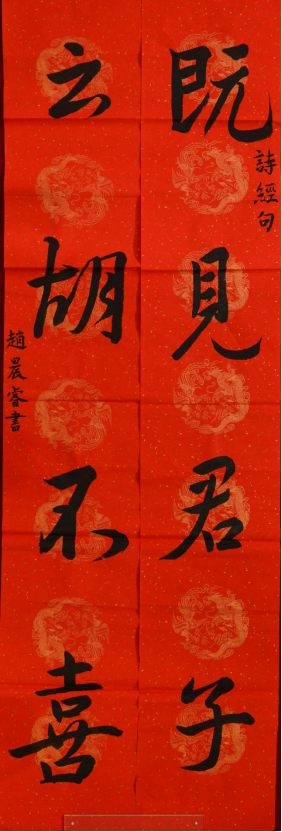 詩經句
既見君子
云胡不喜
趙晨睿書